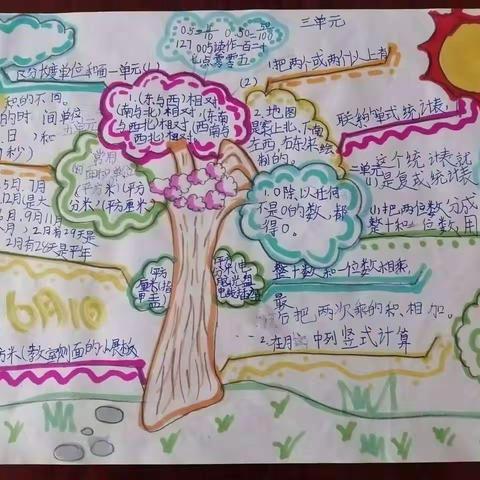 05=5/10 0.50=50/100
127.005读作一百二十
七点零零五
三单元
区分长度单位和面一单元(1)
积的不同。
的时 间单位
日 )和
秒)
5月 7月
12月(是大
月,9月11月
月),2月有29天是
2月有28天是平年
五单元
常用
的面积单位
(平方米)(平方
分米)(平方厘米)
1.(东与西)相对
(南与北)相对,(东南
与西北)相对,(西南与
东北)相对
(2)
2.地图
是上北、下南
左西、右东来绘
制的。
1.把两个或两个以上有
联系的单式统计表
这个统计表就
是复式统计表
二单元
(1)
1.0除以任何
不是0的数,都
得0。
1.把两位数分成
整十和一位数,用
整十数和一位数相乘,
最
后把两次乘的积、相加。
2.在月 中列竖式计算
6月10
平方
厘米(指
甲盖)
方米(教室侧面的小黑板